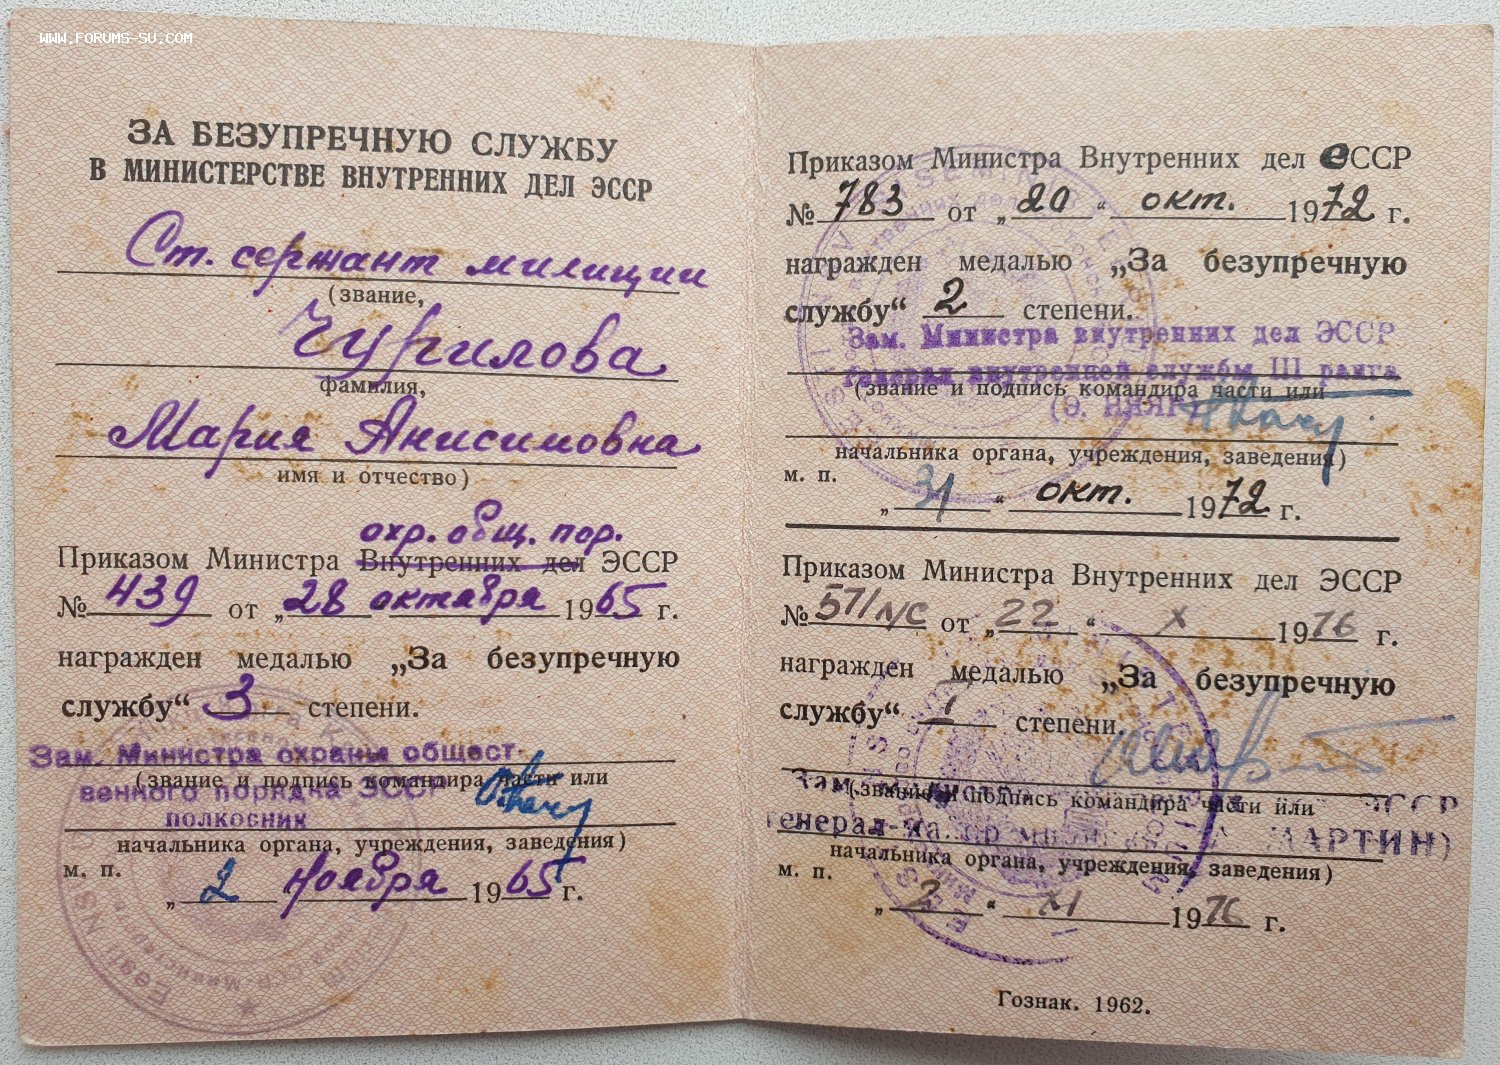 WWW.FORUMS-SU.COM
ЗА БЕЗУПРЕЧНУЮ СЛУЖБУ
В МИНИСТЕРСТВЕ ВНУТРЕННИХ ДЕЛ ЭССР
Ст. сержант милиции
(звание,
Чурилова
фамилия,
Мария Анисимовна
имя и отчество)
охр. общ. пор.
Приказом Министра Внутренних дел ЭССР
№ 439 от „28 октября 1965 г.
награжден медалью „За безупречную
службу“ 3 степени.
Зам. Министра охраны общест-
(звание и подпись командира части или
венного порядка ЭССР
полковник
начальника органа, учреждения, заведения)
м. п.
„2 ноября 1965 г.
Приказом Министра Внутренних дел ЭССР
№ 783 от „20“ окт. 1972 г.
награжден медалью „За безупречную
службу“ 2 степени.
Зам. Министра внутренних дел ЭССР
генерал внутренней службы III ранга
(звание и подпись командира части или
начальника органа, учреждения, заведения)
м. п.
„31“ окт. 1972 г.
Приказом Министра Внутренних дел ЭССР
№ 571 л/с от „22“ X 1976 г.
награжден медалью „За безупречную
службу“ I степени.
Зам. Министра ЭССР
(звание и подпись командира части или
генерал-ма МАРТИН)
начальника органа, учреждения, заведения)
м. п.
„2“ XI 1976 г.
Гознак. 1962.